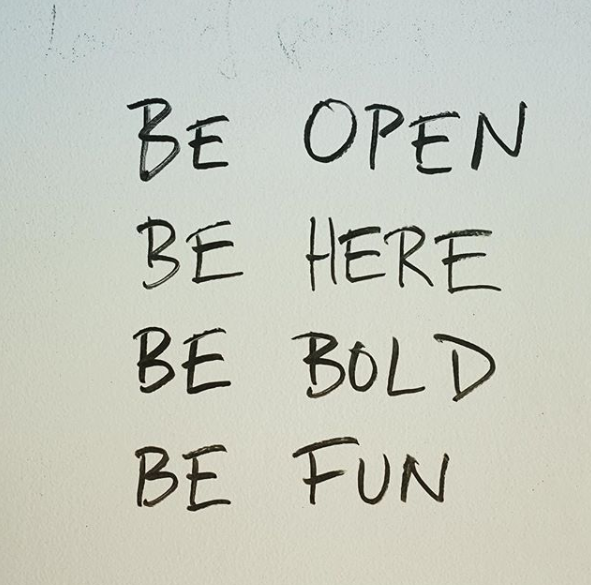 BE OPEN
BE HERE
BE BOLD
BE FUN